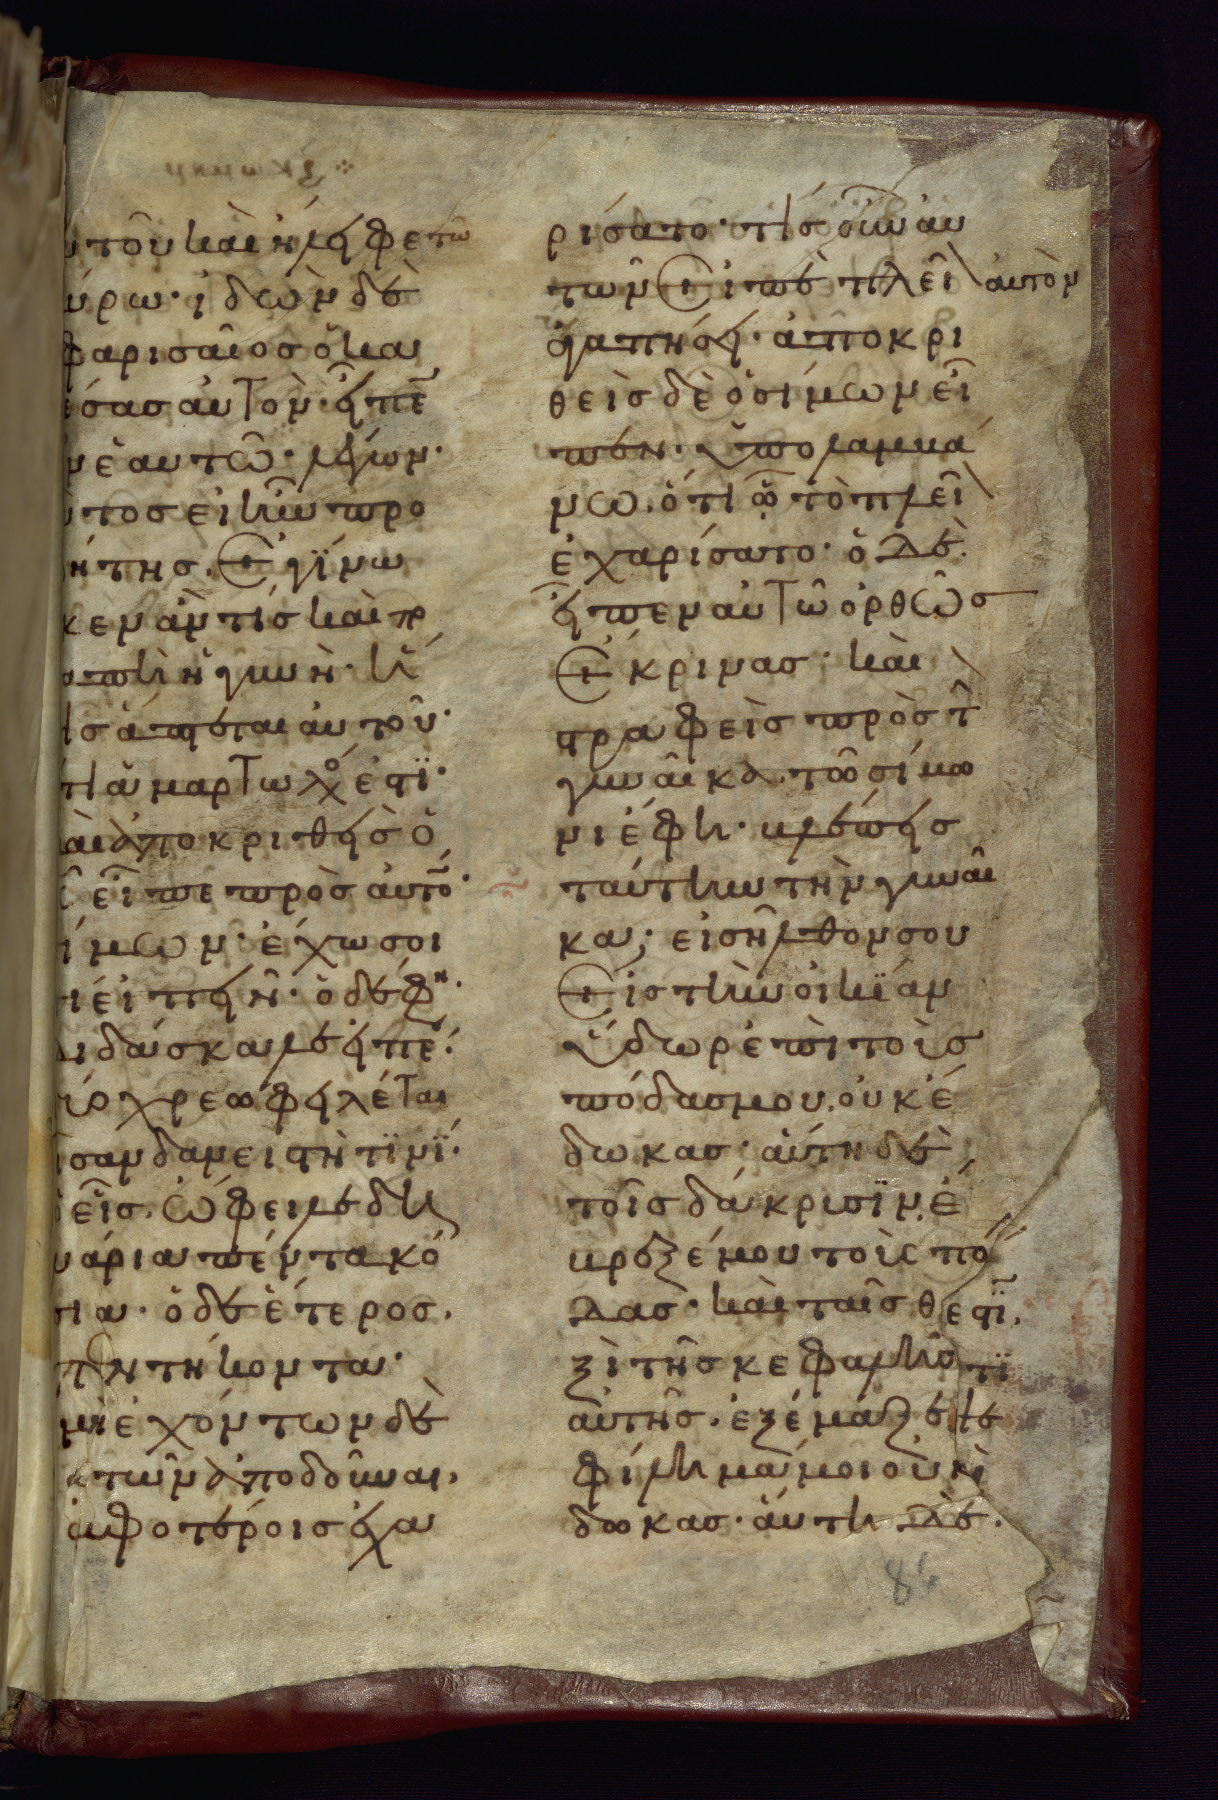 υτοῦ καὶ ἤλειφε τῶ
ύρω· ἰδὼν δὲ
φαρισαῖος ὁ κα
έσας αὐτὸν· εἶπε
ν ἑαυτῶ· λέγων·
υτος εἰ ἦν προ
ήτης. Εγίνω
κεν ἂν τίς καὶ π
απὴ ἡ γυνὴ· ἥ
ις ἅπτεται αὐτοῦ·
τι ἁμαρτωλός ἐστϊ·
αὶ ἀποκριθεὶς ὁ
εἶπε πρὸς αὐτὸ·
ίμων· ἔχω σοι
ι εἰπεῖν· ὁ δέ φη·
διδάσκαλε εἰπέ·
ύο χρεωφειλέται
ἦσαν δανειστῆ τϊνί·
εἷς. ὤφειλε δη
νάρια πέντακό
σια· ὁ δὲ ἕτερος.
πεντήκοντα·
μὴ ἐχόντων δὲ
αὐτῶν ἀποδοῦναι.
ἀμφοτέροις ἐχα
ρίσατο· τίς οὖν αὐ
τῶν Εἰπὲ πλεῖ αὐτὸν
ἀγαπήσει· ἀποκρι
θεὶς δὲ ὁ σίμων εἶ
πεν· ὑπολαμβά
νω. ὅτι ὧ τὸ πλεῖ
ἐχαρίσατο· ὁ δὲ.
εἶπεν αὐτῶ ὀρθῶς
Εκρινας· καὶ
στραφεὶς πρὸς τ
γυναῖκα. τῶ σίμω
νι ἔφη· βλέπεις
ταύτην τὴν γυναῖ
κα; εἰσῆλθον σου
Εἰς τὴν οἰκϊάν
ὕδωρ ἐπὶ τοὶς
πόδας μου. οὐκ ἔ
δωκας· αὕτη δὲ
τοῖς δάκρυσϊν ἔ
βρεξέ μου τοὶς πό
δας· καὶ ταῖς θ
ξὶ τῆς κεφαλῆς
αὐτῆς. ἐξέμαξε
φίλημά μοι οὐκ
δωκας· αὕτη δὲ.